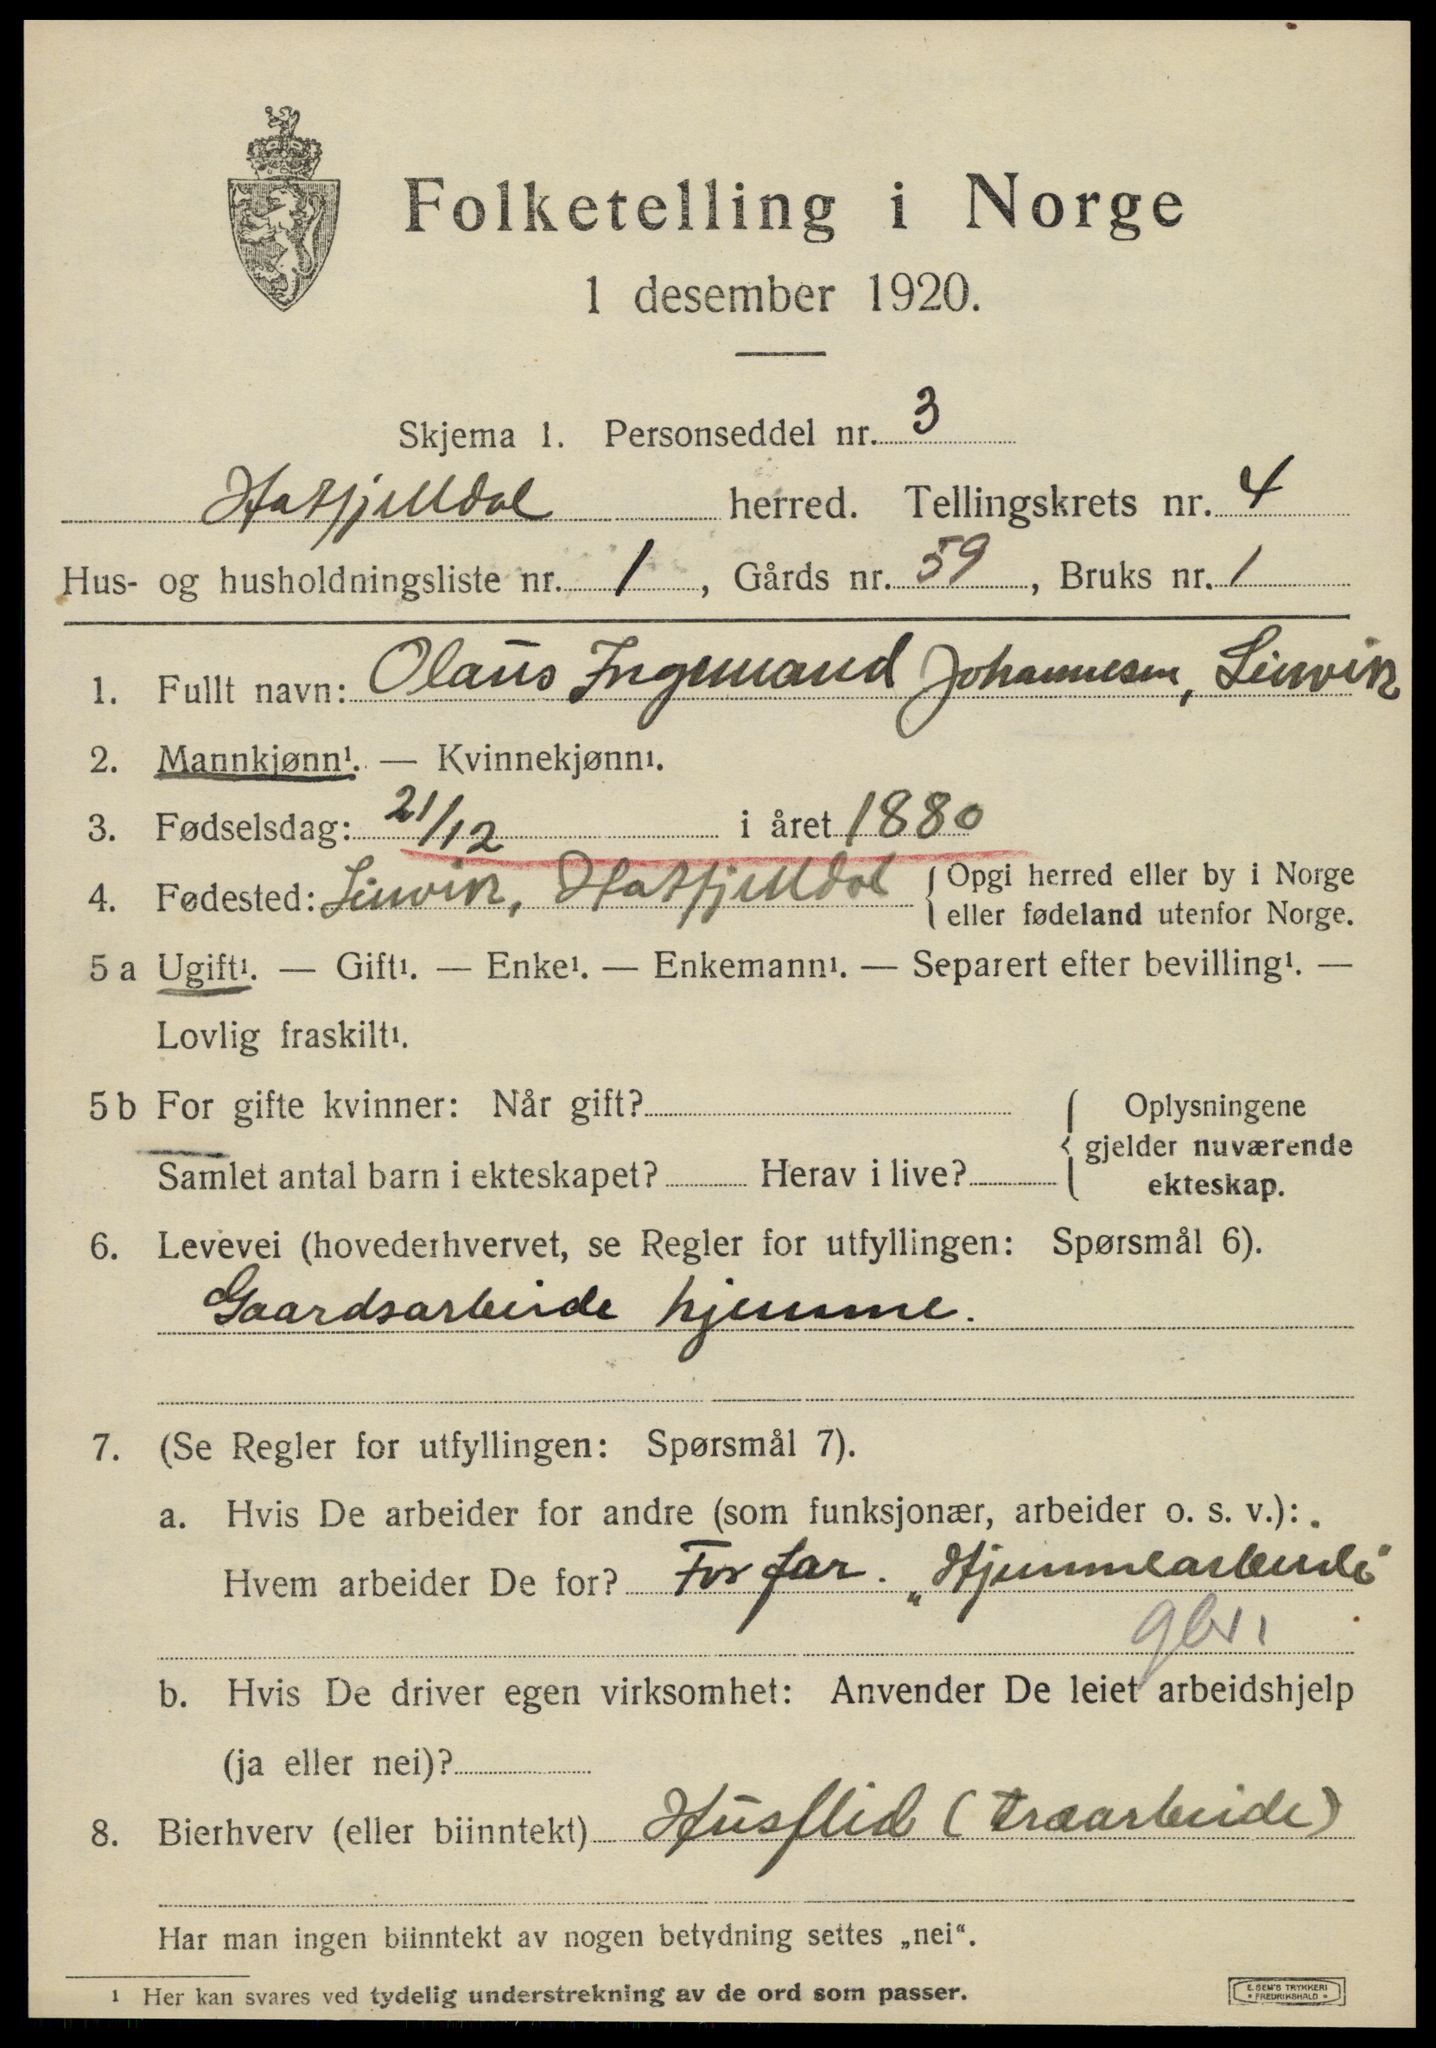 Folketelling i Norge
1 desember 1920.
Skjema 1. Personseddel nr. 3
Hatfjelldal herred. Tellingskrets nr. 4
Hus- og husholdningsliste nr. 1, Gårds nr. 59, Bruks nr. 1
1. Fullt navn: Olaus Ingemand Johannesen, Sirvik
2. Mannkjønn¹. — Kvinnekjønn¹.
3. Fødselsdag: 21/12 i året 1880
4. Fødested: Sirvik, Hatfjelldal { Opgi herred eller by i Norge
eller fødeland utenfor Norge.
5 a Ugift¹. — Gift¹. — Enke¹. — Enkemann¹. — Separert efter bevilling¹. —
Lovlig fraskilt¹.
5 b For gifte kvinner: Når gift? { Oplysningene
gjelder nuværende
ekteskap.
Samlet antal barn i ekteskapet? Herav i live?
6. Levevei (hovederhvervet, se Regler for utfyllingen: Spørsmål 6).
Gaardsarbeide hjemme.
7. (Se Regler for utfyllingen: Spørsmål 7).
a. Hvis De arbeider for andre (som funksjonær, arbeider o. s. v.):
Hvem arbeider De for? For far. „Hjemmearbeide"
b. Hvis De driver egen virksomhet: Anvender De leiet arbeidshjelp
(ja eller nei)?
8. Bierhverv (eller biinntekt) Husflid (træarbeide)
Har man ingen biinntekt av nogen betydning settes „nei“.
¹ Her kan svares ved tydelig understrekning av de ord som passer.
E. SEM'S TRYKKERI
FREDRIKSHALD